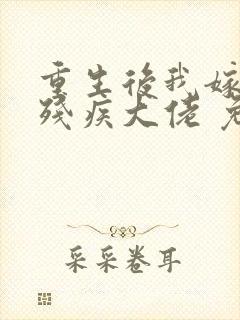 重生後我嫁
殘疾大佬
采采卷耳